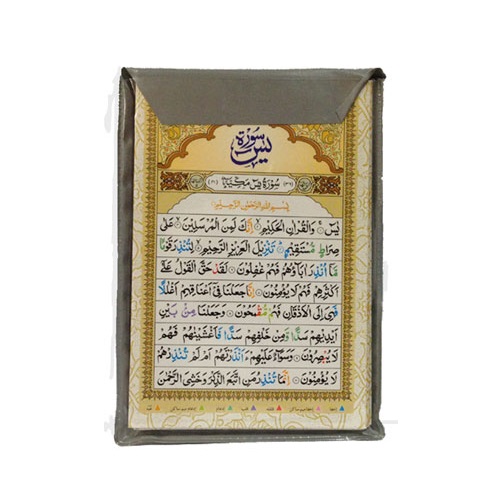 سورة
يس
سُوْرَةُ يٰسٓ مَكِّيَّةٌ
بِسْمِ اللّٰهِ الرَّحْمٰنِ الرَّحِيْمِ
يٰسٓ ۞ وَالْقُرْاٰنِ الْحَكِيْمِ ۞ اِنَّكَ لَمِنَ الْمُرْسَلِيْنَ ۞ عَلٰى
صِرَاطٍ مُّسْتَقِيْمٍ ۞ تَنْزِيْلَ الْعَزِيْزِ الرَّحِيْمِ ۞ لِتُنْذِرَ قَوْمًا
مَّاۤ اُنْذِرَ اٰبَآؤُهُمْ فَهُمْ غٰفِلُوْنَ ۞ لَقَدْ حَقَّ الْقَوْلُ عَلٰٓى
اَكْثَرِهِمْ فَهُمْ لَا يُؤْمِنُوْنَ ۞ اِنَّا جَعَلْنَا فِيْۤ اَعْنَاقِهِمْ اَغْلٰلًا
فَهِيَ اِلَى الْاَذْقَانِ فَهُمْ مُّقْمَحُوْنَ ۞ وَجَعَلْنَا مِنْۢ بَيْنِ
اَيْدِيْهِمْ سَدًّا وَّمِنْ خَلْفِهِمْ سَدًّا فَاَغْشَيْنٰهُمْ فَهُمْ
لَا يُبْصِرُوْنَ ۞ وَسَوَآءٌ عَلَيْهِمْ ءَاَنْذَرْتَهُمْ اَمْ لَمْ تُنْذِرْهُمْ
لَا يُؤْمِنُوْنَ ۞ اِنَّمَا تُنْذِرُ مَنِ اتَّبَعَ الذِّكْرَ وَخَشِيَ الرَّحْمٰنَ